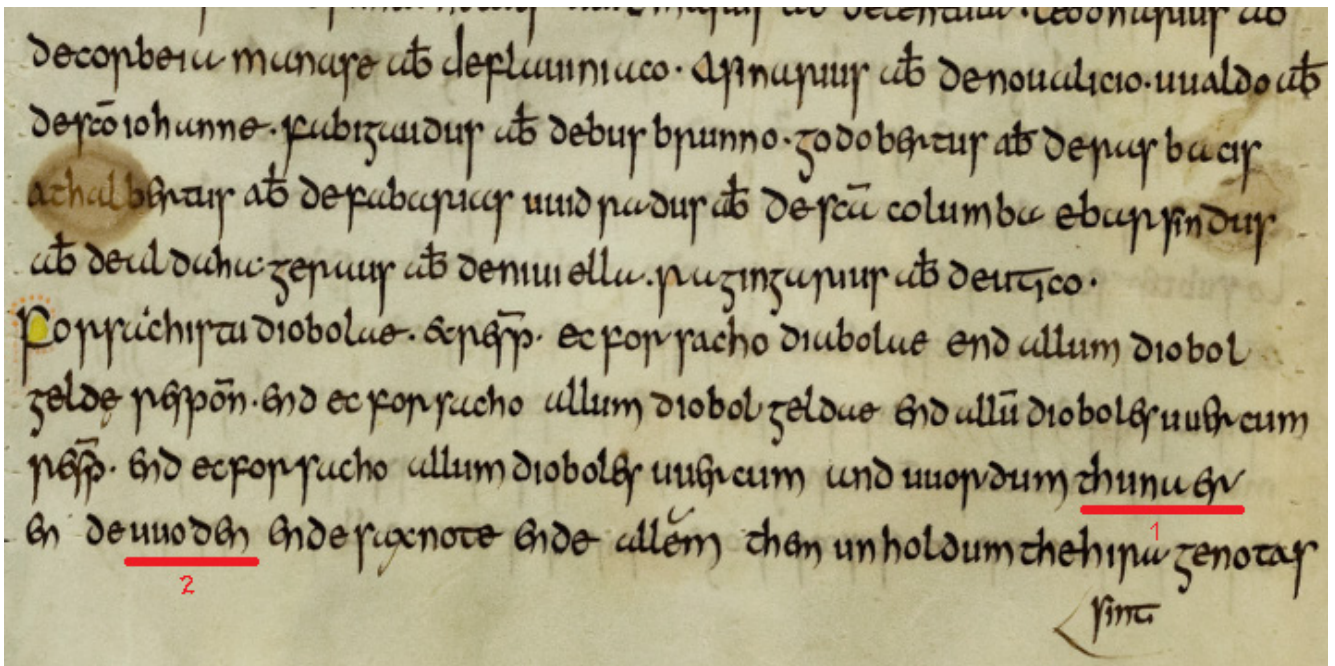 decorbeia manase ab̄ deflauuniaco. Asinarius ab̄ denoualicio. uualdo ab̄
descō iohanne. fabigaudus ab̄ debus brunno. godobertus ab̄ deras bacis
athalbertus ab̄ defabarias uuid radus ab̄ descā columba ebarsindus
ab̄ deal daha. geraus ab̄ deniui ella. ragingarius ab̄ deutico.
Forsachistu diobolae. & resp̄. ec forsacho diabolae end allum diobol
gelde respōn. end ec forsacho allum diobol geldae end allū dioboles uuercum
resp̄. end ecforsacho allum dioboles uuercum and uuordum thuna er
1
en de uuoden ende saxnote ende allem them unholdum thehira genotas
2
sint